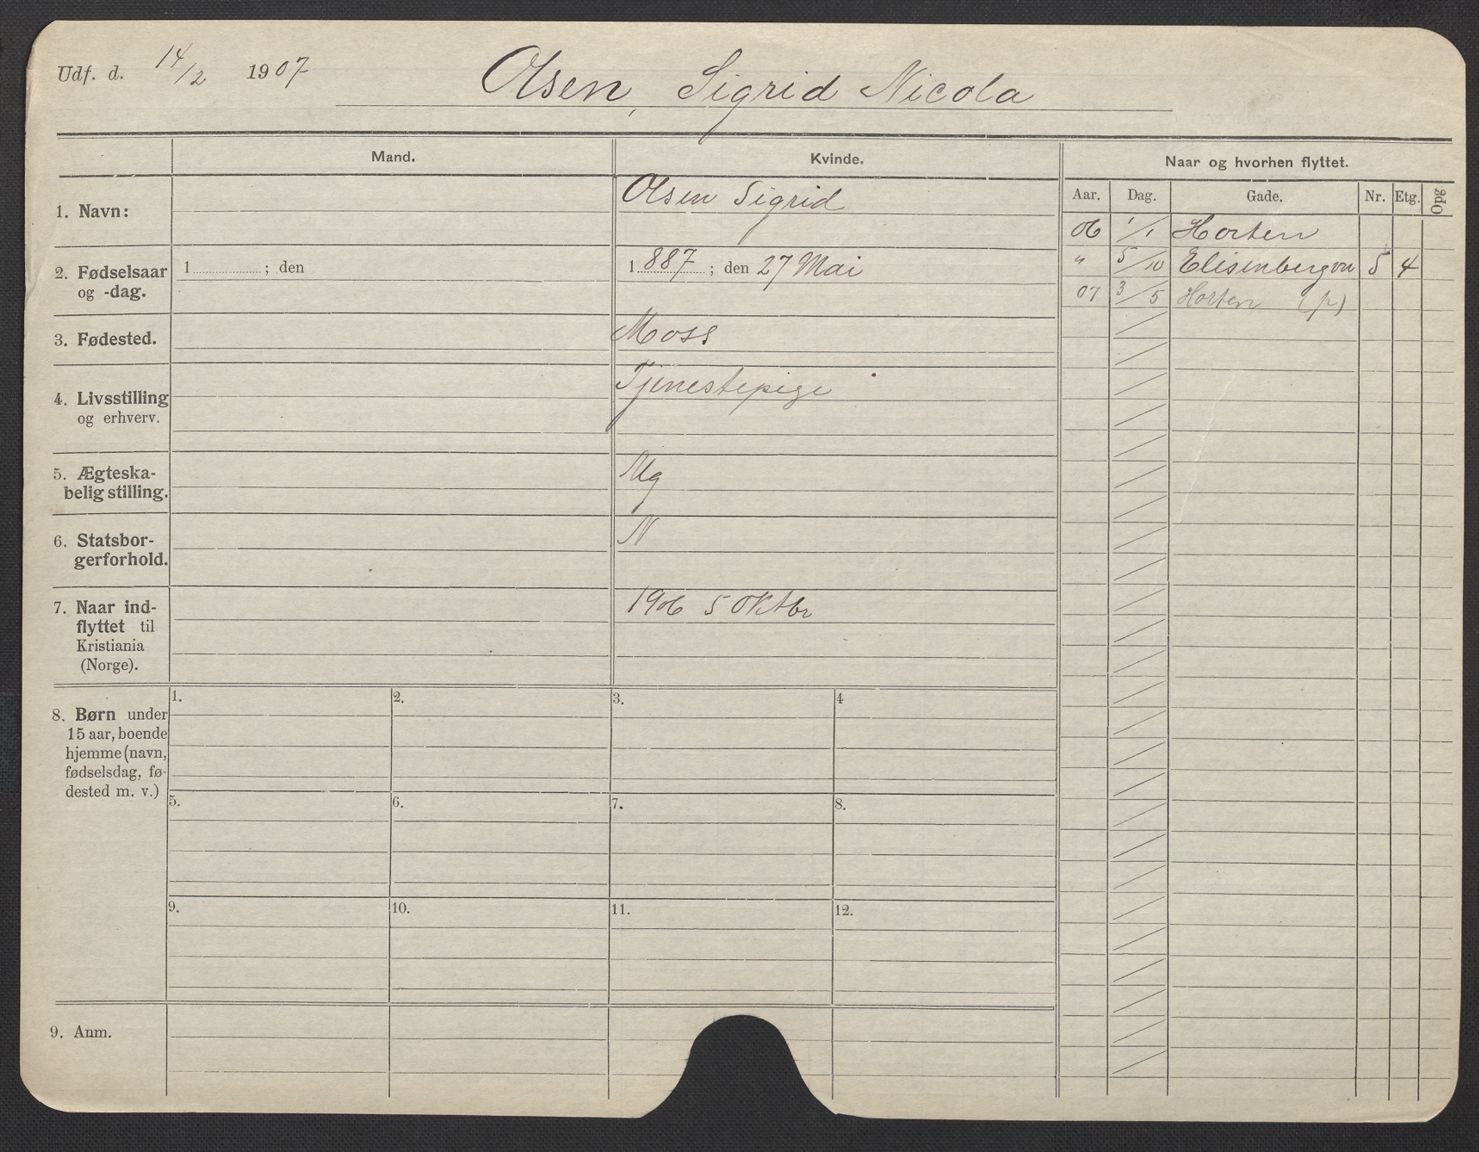 Udf. d. 14/2 1907
Olsen, Sigrid Nicola
Mand.
Kvinde.
Naar og hvorhen flyttet.
Aar. Dag. Gade. Nr. Etg. Opg
1. Navn:
Olsen Sigrid
06 1/1 Horten
2. Fødselsaar
og -dag.
1 ; den
1 887 ; den 27 Mai
" 5/10 Elisenbergvn 5 4
07 3/5 Horten (p)
3. Fødested.
Moss
4. Livsstilling
og erhverv.
Tjenestepige
5. Ægteska-
belig stilling.
Ug
6. Statsbor-
gerforhold.
N
7. Naar ind-
flyttet til
Kristiania
(Norge).
1906 5 Oktbr
8. Børn under
15 aar, boende
hjemme (navn,
fødselsdag, fø-
dested m. v.)
1. 2. 3. 4
5. 6. 7. 8.
9. 10. 11. 12.
9. Anm.